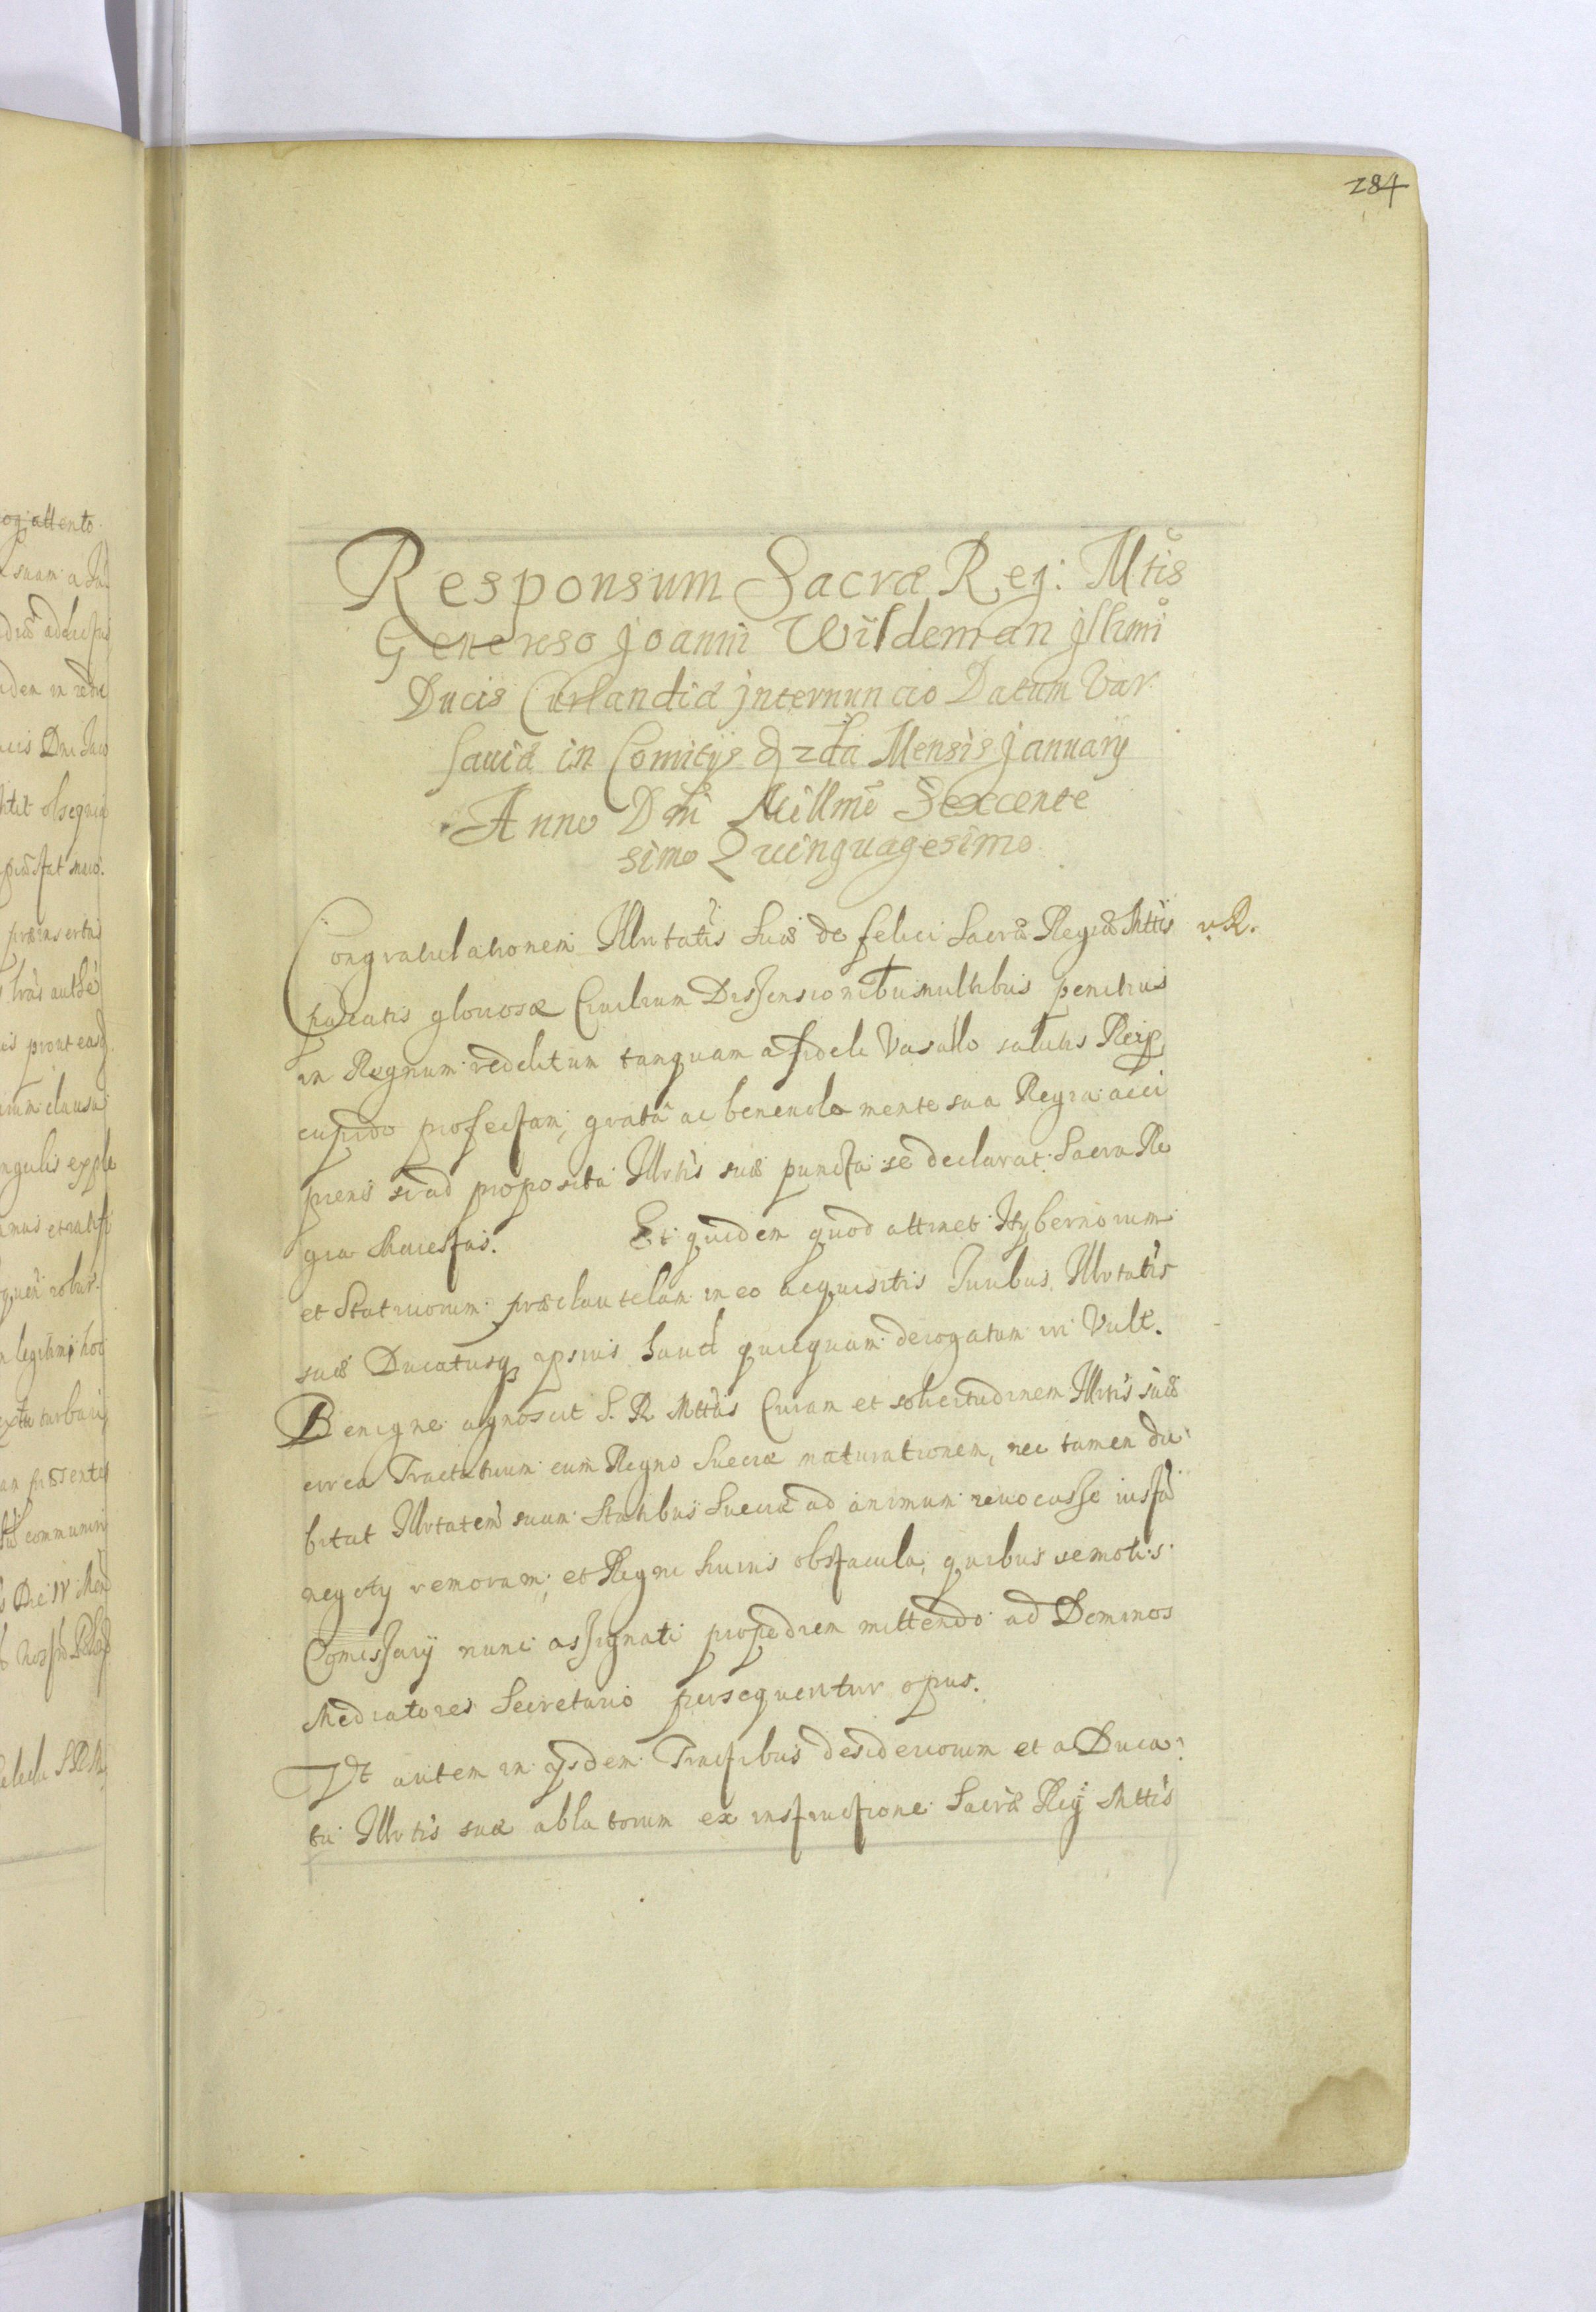 284
og attento
Responsum Sacræ Reg: Mtis
Generoso Joanni Wildeman Jllimi
Ducis Curlandiæ internuncio Datum Var
sauiæ in Comitijs d 2da Mensis January
Anno Dni Millmo Sexcente
simo Quinquagesimo.
Congratulationem Illrtatis Suæ de felici Sacræ Regiæ Mttis v. R.
pacatis gloriosæ Ciuilium Dissensionu tumultibus penitus
in Regnum reditum tanquam a fideli Vasallo salutis Reip
cupido profectam, grata ac beneuola mente sua Regia acci
piens ad proposita Illrtis suæ puncta se declarat Sacra Re
gia Maiestas. Et quidem quod attinet Hybernorum
et Statiuorum præclautelam in eo acquisitis Juribus Illrtatis
suæ Ducatusq ipsius haud quicquam derogatum iri Vult.
Benigne agnoscit S. R Mttas Curam et solicitudinem Illrtis suæ
circa Tractatuum cum Regno Sueciæ maturationem, nec tamen du
bitat Illrtatem suam Statibus Sueciæ ad animum reuocasse iusta
negoty remoram, et Regni huius obstacula, quibus semotis
Comissarij nunc assignati propediem mittendo ad Dominos
Mediatores Secretario persequentur opus.
Vt autem in ijsdem Tractibus desideriorum et a Duca
tu Illrtis suæ ablatorum ex instructione Sacræ Reg Mttis